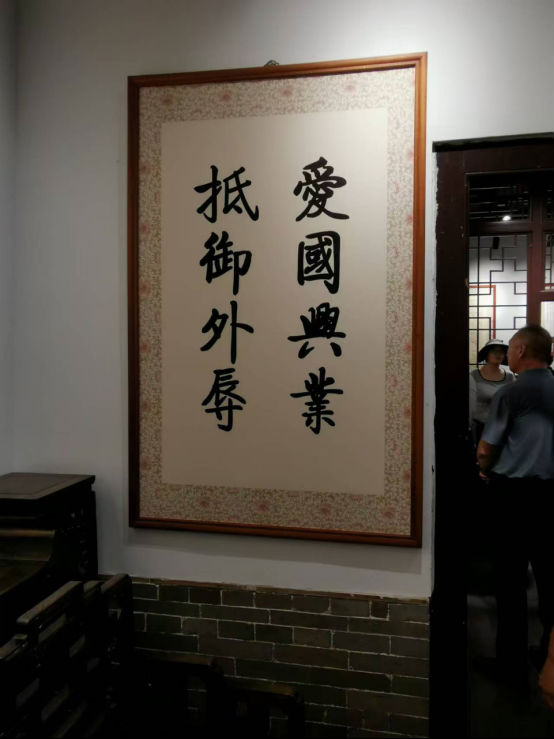 愛國興業
抵御外辱